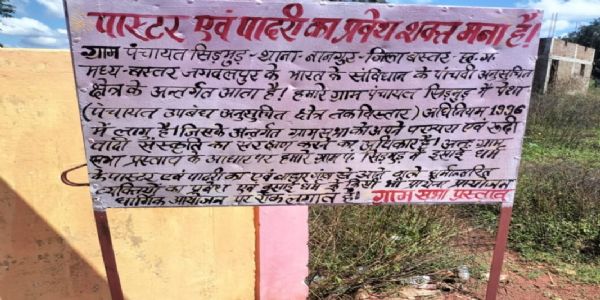 पास्टर एवं पादरी का प्रवेश शक्त मना है।
ग्राम पंचायत सिड़मुड़ - थाना - नानगुर - जिला बस्तर - छ.ग.
मध्य-बस्तर जगदलपुर के भारत के संविधान के पांचवी अनुसूचित
क्षेत्र के अन्तर्गत आता है। हमारे ग्राम पंचायत सिड़मुड़ में पेशा
(पंचायत उपबंध अनुसूचित क्षेत्र तक विस्तार) अधिनियम 1996
में लागू है। जिसके अन्तर्गत ग्रामसभा को अपने परम्परा एवं रूढ़ी
वादी संस्कृति का संरक्षण करने का अधिकार है। अतः ग्राम
सभा प्रस्ताव के आधार पर हमारे ग्राम पं. सिड़मुड़ में ईसाई धर्म
के पास्टर एवं पादरी का एवं बाहर गांव से आने वाले धर्मान्तरित
व्यक्तियों का प्रवेश एवं ईसाई धर्म के किसी भी प्रार्थना प्रायोजन
धार्मिक आयोजन पर रोक लगाते है। ग्राम सभा प्रस्ताव